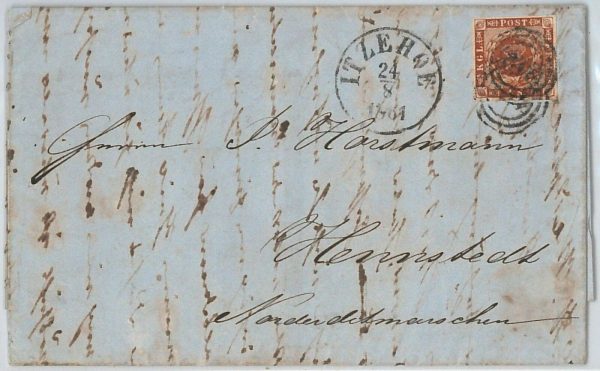 KGL POST
ITZEHOE
24
8
1861
Herrn P. Horstmann
Hennstedt
Norderditmarschen